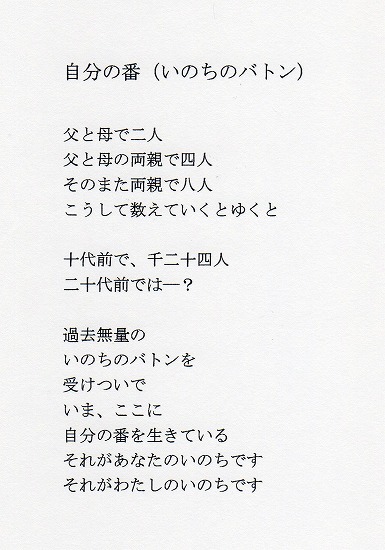 自分の番（いのちのバトン）
父と母で二人
父と母の両親で四人
そのまた両親で八人
こうして数えていくとゆくと
十代前で、千二十四人
二十代前では―？
過去無量の
いのちのバトンを
受けついで
いま、ここに
自分の番を生きている
それがあなたのいのちです
それがわたしのいのちです